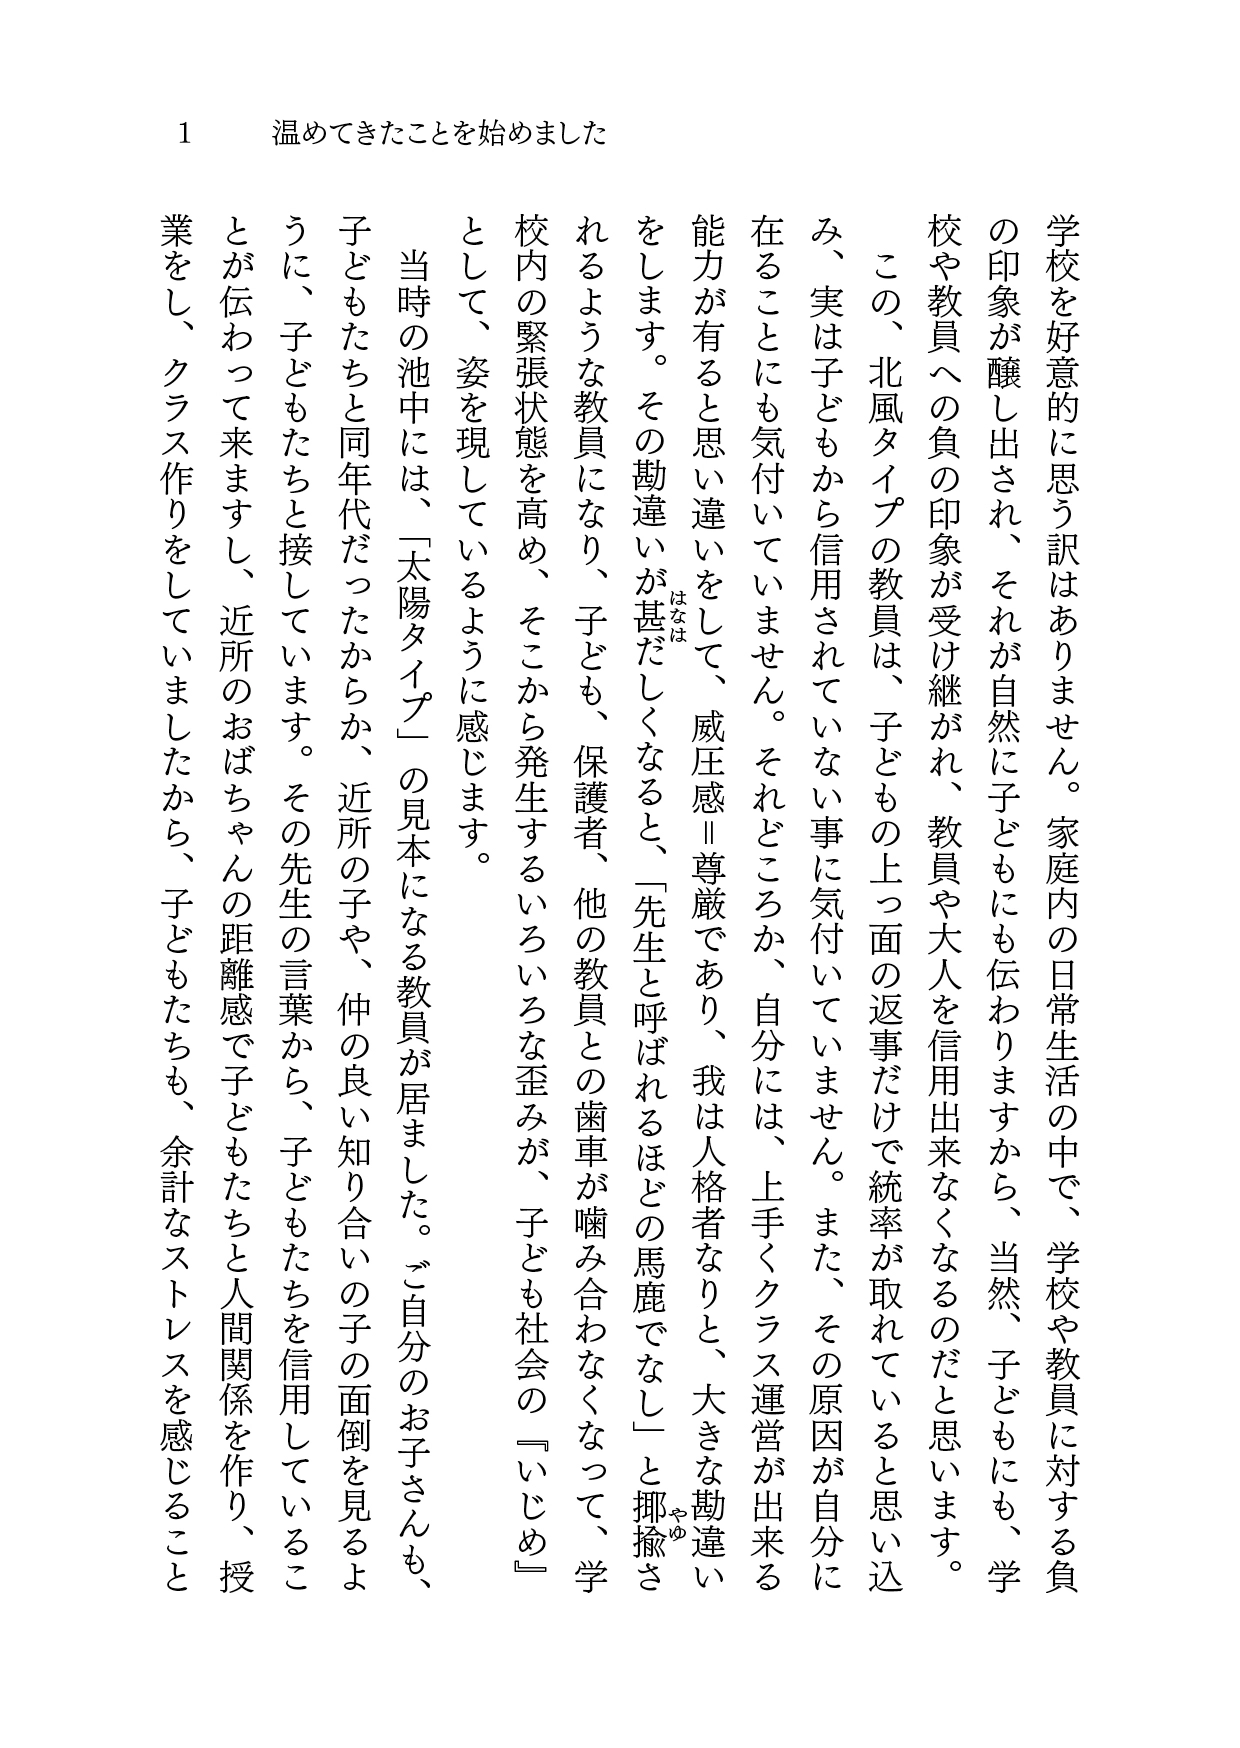 1 温めてきたことを始めました
学校を好意的に思う訳はありません。家庭内の日常生活の中で、学校や教員に対する負
の印象が醸し出され、それが自然に子どもにも伝わりますから、当然、子どもにも、学
校や教員への負の印象が受け継がれ、教員や大人を信用出来なくなるのだと思います。
この、北風タイプの教員は、子どもの上っ面の返事だけで統率が取れていると思い込
み、実は子どもから信用されていない事に気付いていません。また、その原因が自分に
在ることにも気付いていません。それどころか、自分には、上手くクラス運営が出来る
能力が有ると思い違いをして、威圧感＝尊厳であり、我は人格者なりと、大きな勘違い
をします。その勘違いが甚だしくなると、「先生と呼ばれるほどの馬鹿でなし」と揶揄さ
はなは
やゆ
れるような教員になり、子ども、保護者、他の教員との歯車が噛み合わなくなって、学
校内の緊張状態を高め、そこから発生するいろいろな歪みが、子ども社会の『いじめ』
として、姿を現しているように感じます。
当時の池中には、「太陽タイプ」の見本になる教員が居ました。ご自分のお子さんも、
子どもたちと同年代だったからか、近所の子や、仲の良い知り合いの子の面倒を見るよ
うに、子どもたちと接しています。その先生の言葉から、子どもたちを信用しているこ
とが伝わって来ますし、近所のおばちゃんの距離感で子どもたちと人間関係を作り、授
業をし、クラス作りをしていましたから、子どもたちも、余計なストレスを感じること